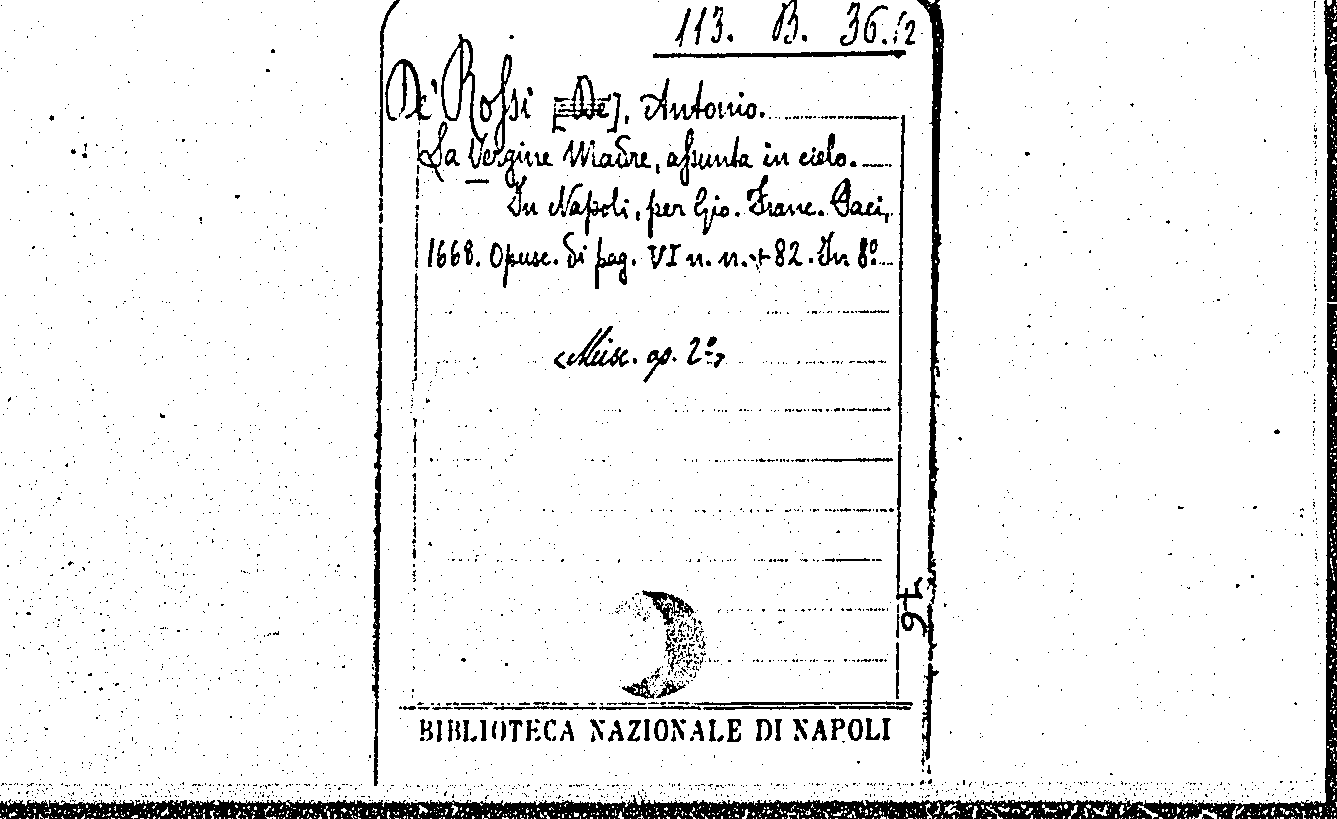 113. B. 36.(2
De' Rossi [De'], Antonio.
La Vergine Madre, assunta in cielo.
In Napoli, per Gio. Franc. Paci,
1668. Opusc. di pag. VI n. n. + 82. In 8º
<Misc. op. 2º>
76
BIBLIOTECA NAZIONALE DI NAPOLI